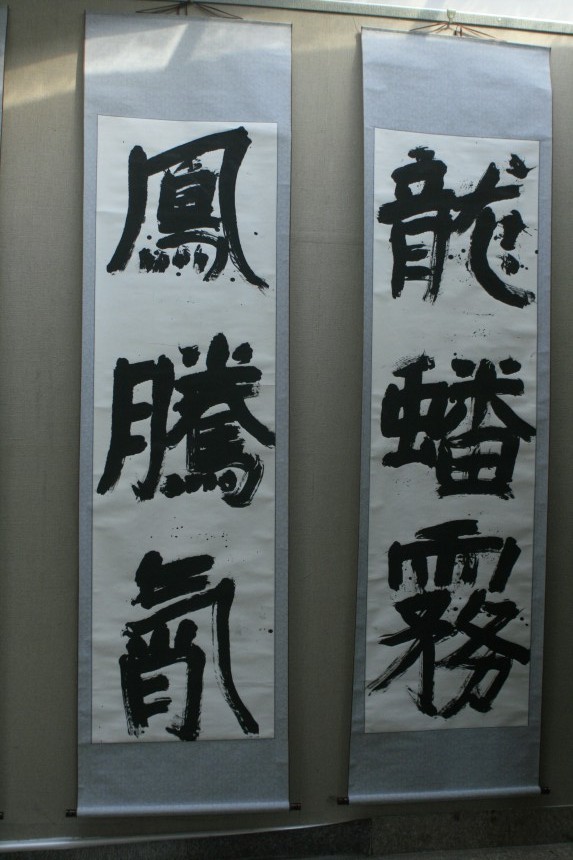 龍蟠霧
鳳騰